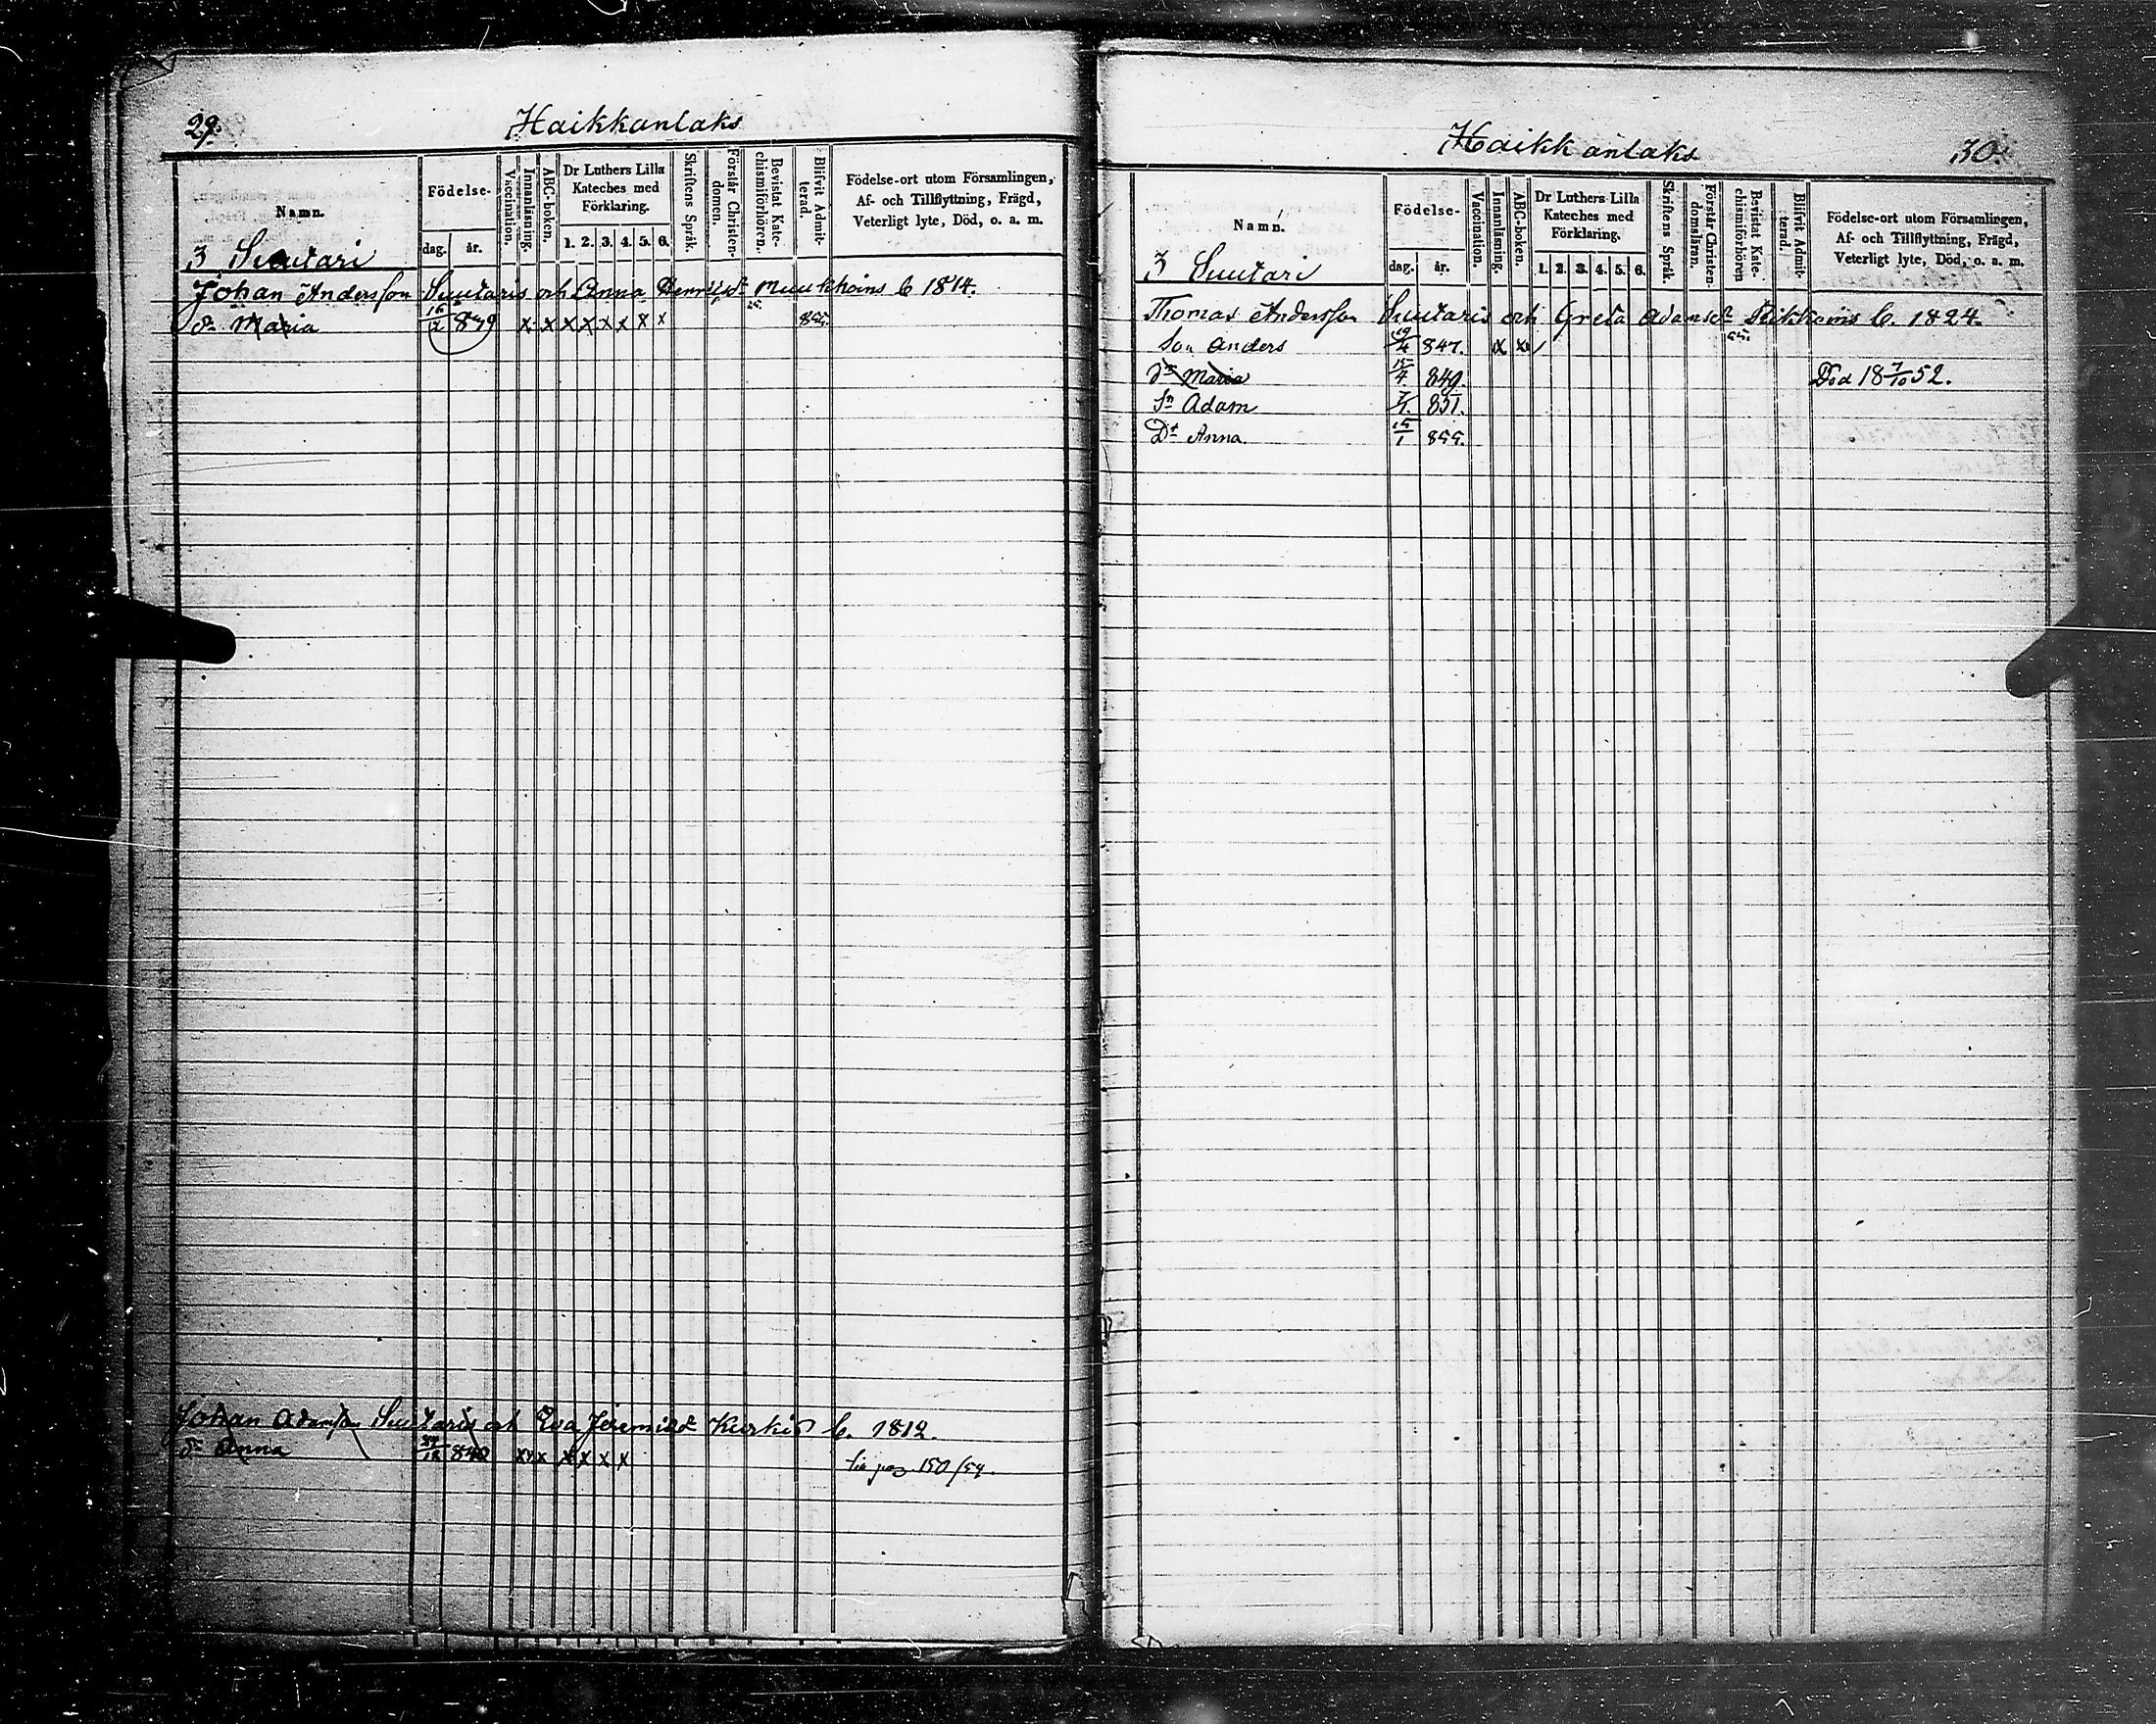 29.
Haikkanlaks
Namn.
Födelse-
dag. år.
Vaccination.
Innanläsning.
ABC-boken.
Dr Luthers Lilla
Kateches med
Förklaring.
1. 2. 3. 4. 5. 6.
Skriftens Språk.
Förstår Christen-
domen.
Bevistat Kate-
chismiförhören.
Blifvit Admit-
terad.
Födelse-ort utom Församlingen,
Af- och Tillflyttning, Frägd,
Veterligt lyte, Död, o. a. m.
3 Suutari
Johan Andersson Suutaris och Anna Muukkoins C 1814.
dr Maria 16/2 849 x x x x x x x x 855.
Johan Adamson Suutaris och Eva Jeremiædr Kurkis C. 1812.
dr Anna 840 x x x x x x x pag 150/54.
Haikkanlaks
30.
Namn.
Födelse-
dag. år.
Vaccination.
Innanläsning.
ABC-boken.
Dr Luthers Lilla
Kateches med
Förklaring.
1. 2. 3. 4. 5. 6.
Skriftens Språk.
Förstår Christen-
domsläran.
Bevistat Kate-
chismiförhören
Blifvit Admit-
terad.
Födelse-ort utom Församlingen,
Af- och Tillflyttning, Frägd,
Veterligt lyte, Död, o. a. m.
3 Suutari
Thomas Andersson Suutaris och Greta Adamsdr C. 1824.
Son Anders 19/4 847. x x
dr Maria 15/4. 849. Död 18 7/10 52.
Sn Adam 7/1. 851.
Dr Anna. 15/1 855.